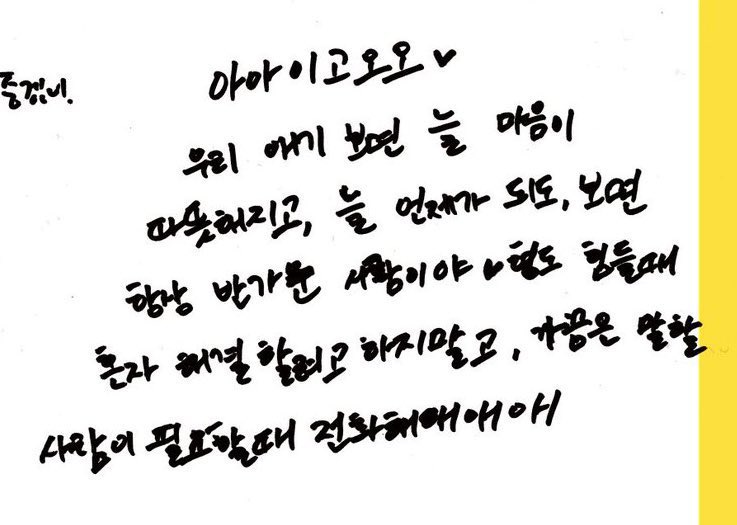 아아이고오오♥
우리 애기 보면 늘 마음이
따뜻해지고, 늘 언제가 되도, 보면
항상 반가운 사람이야♥ 형도 힘들때
혼자 해결할려고 하지말고, 가끔은 말할
사람이 필요할때 전화해애애애애